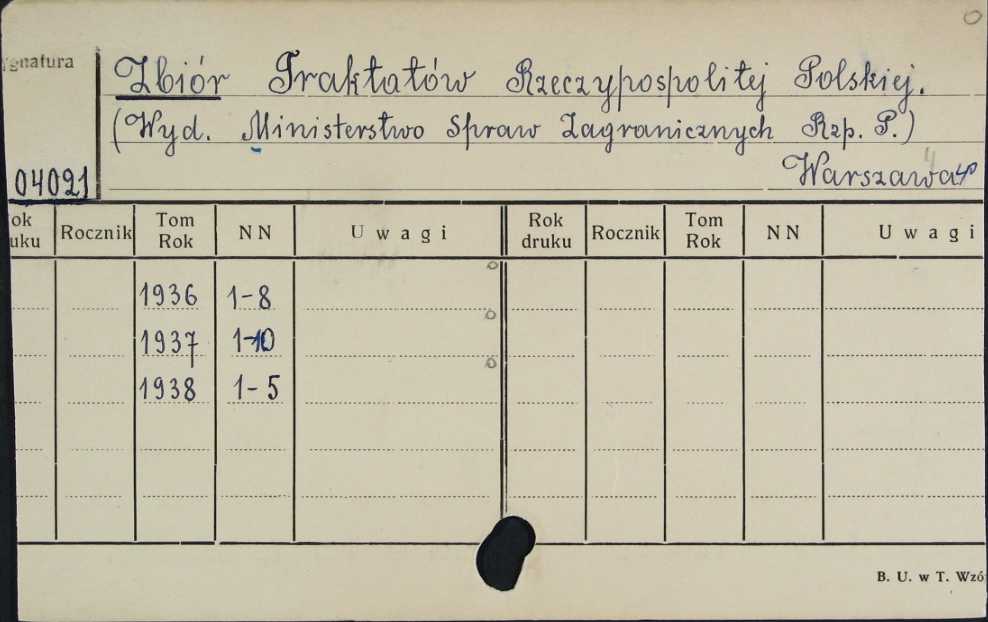 ygnatura
Zbiór Traktatów Rzeczypospolitej Polskiej.
(Wyd. Ministerstwo Spraw Zagranicznych Rzp. P.)
04021
Warszawa 4°
ok Rocznik Tom NN Uwagi Rok Rocznik Tom NN Uwagi
uku Rok druku Rok
1936 1-8
1937 1-10
1938 1-5
B. U. w T. Wzó